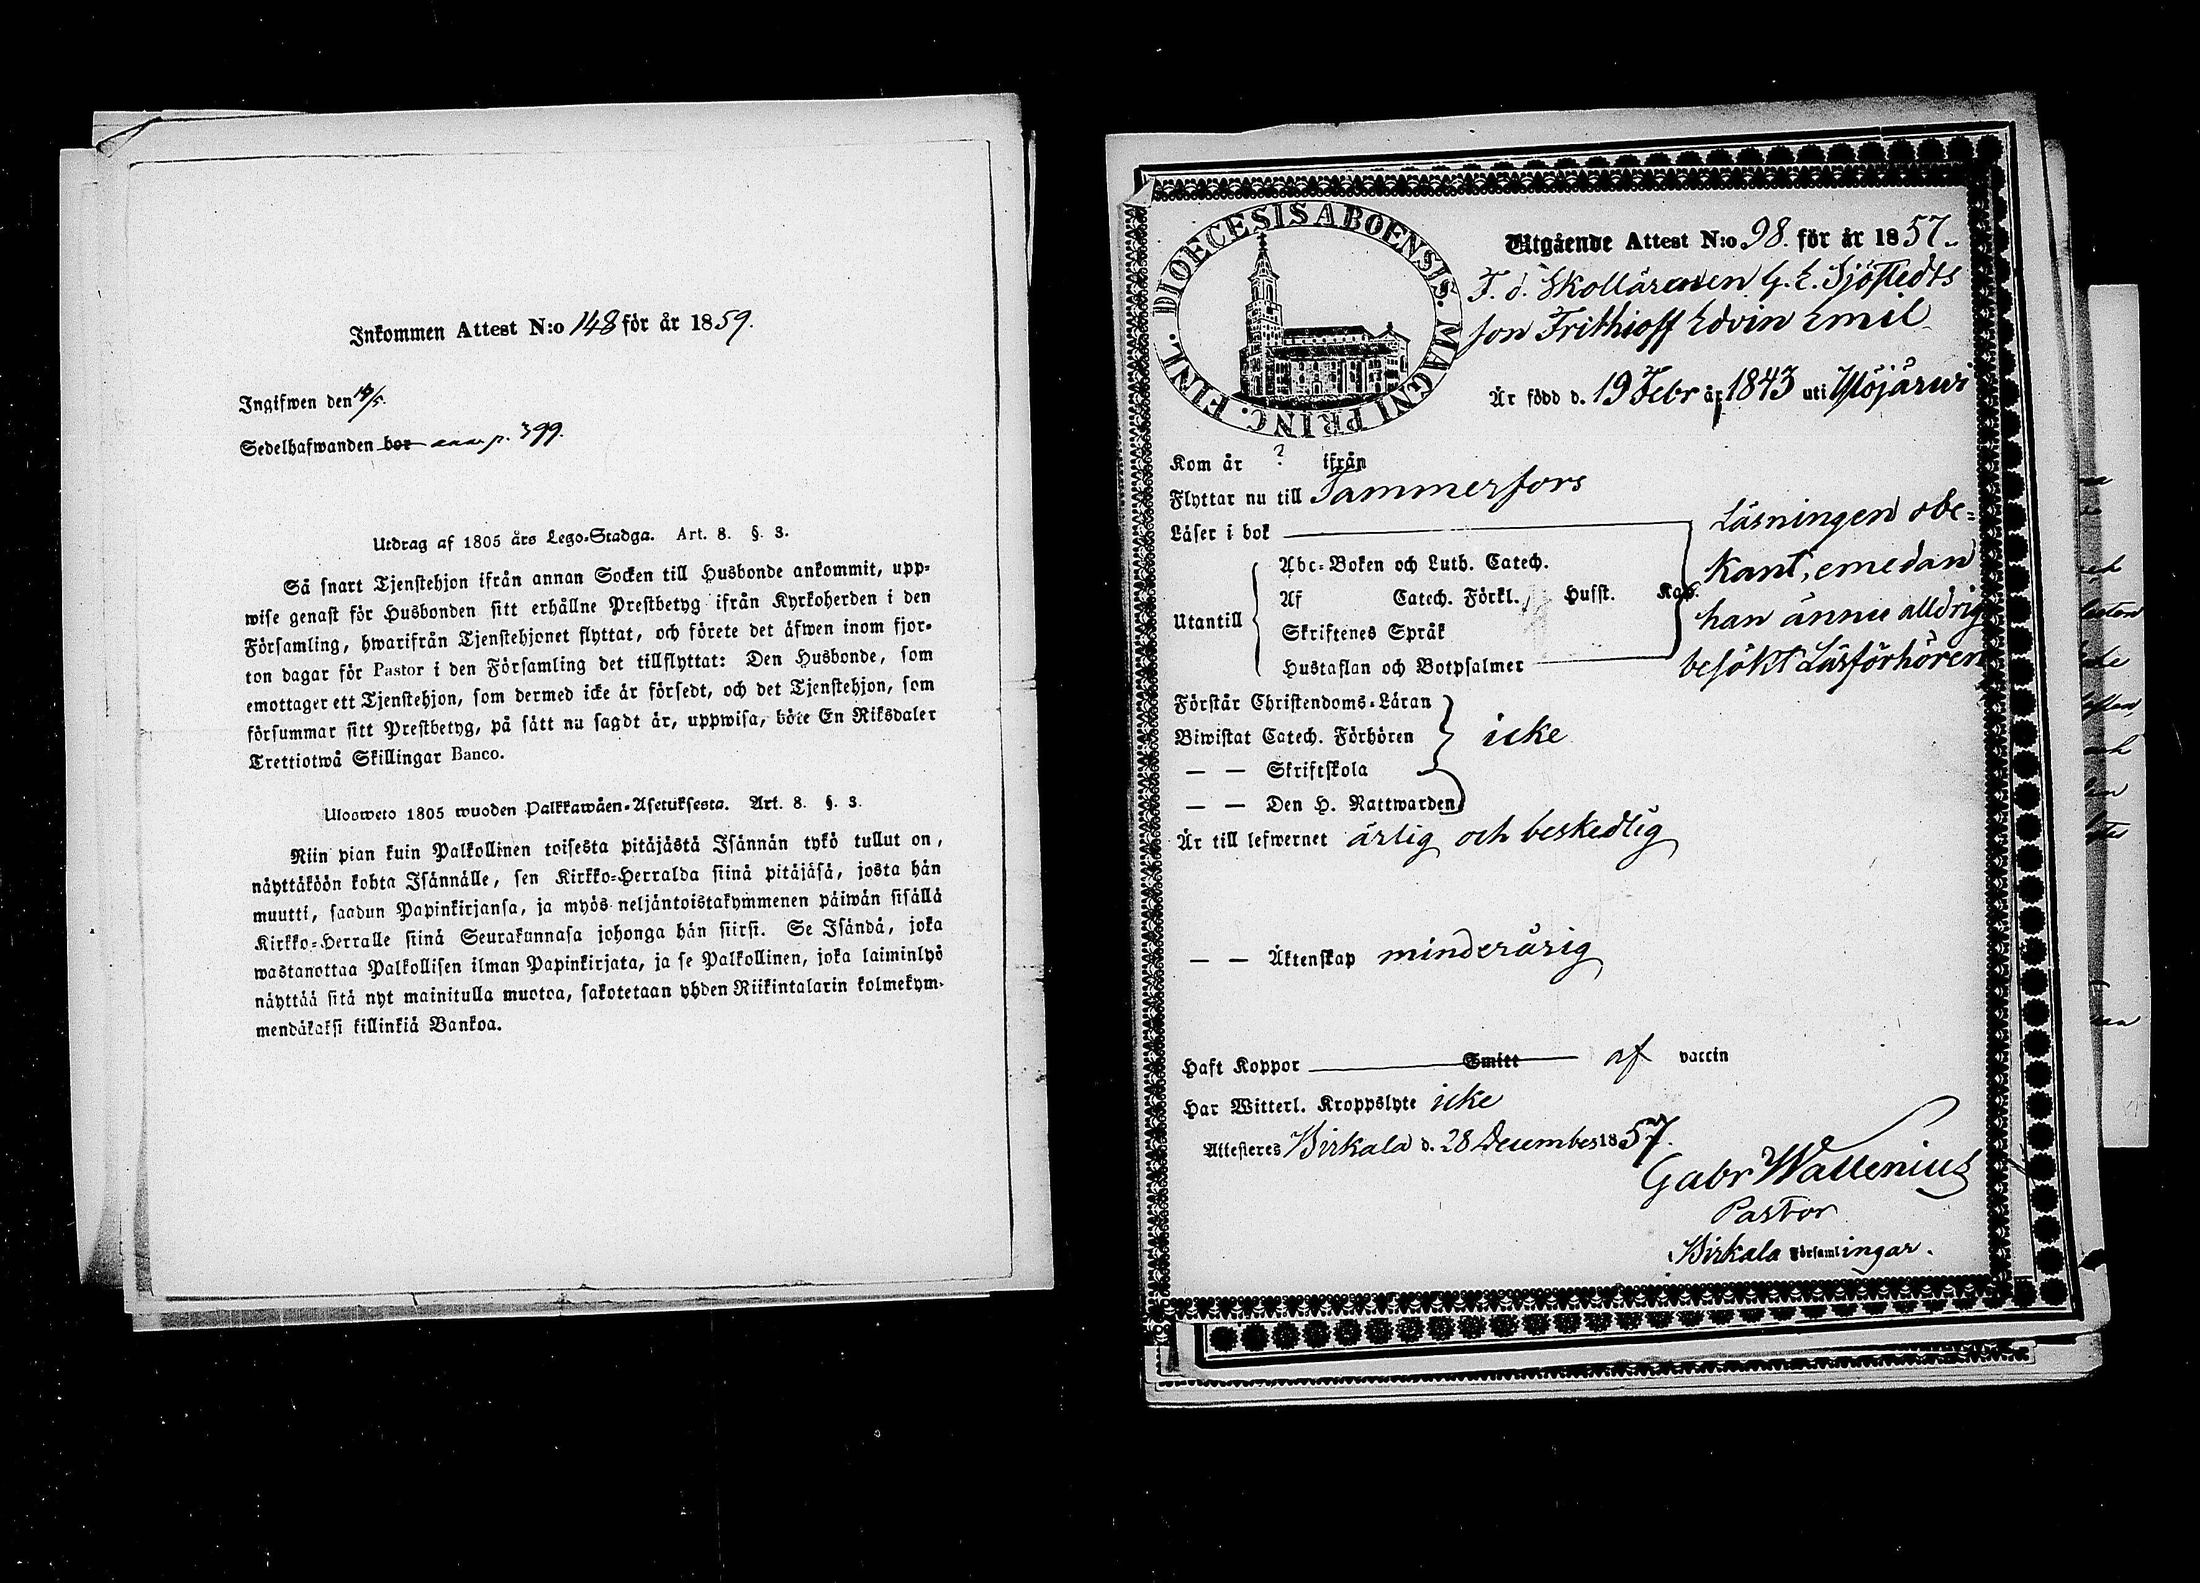 Inkommen Attest N:o 148 för år 1859.
Ingifwen den /5.
Sedelhafwanden bor p. 399.
Utdrag af 1805 års Lego-Stadga. Art. 8. §. 3.
Så snart Tjenstehjon ifrån annan Socken till Husbonde ankommit, upp-
wise genast för Husbonden sitt erhållne Prestbetyg ifrån Kyrkoherden i den
Församling, hwarifrån Tjenstehjonet flyttat, och förete det äfwen inom fjor-
ton dagar för Pastor i den Församling det tillflyttat: Den Husbonde, som
emottager ett Tjenstehjon, som dermed icke är försedt, och det Tjenstehjon, som
försummar sitt Prestbetyg, på sätt nu sagdt är, uppwisa, böte En Riksdaler
Trettiotwå Skillingar Banco.
Ulosweto 1805 wuoden Palkkawäen-Asetuksesta. Art. 8. §. 3.
Niin pian kuin Palkollinen toisesta pitäjästä Isännän tykö tullut on,
näyttäköön kohta Isännälle, sen Kirkko-Herralda siinä pitäjäsä, josta hän
muutti, saadun Papinkirjansa, ja myös neljäntoistakymmenen päiwän sisällä
Kirkko-Herralle siinä Seurakunnasa johonga hän siirsi. Se Isändä, joka
wastanottaa Palkollisen ilman Papinkirjata, ja se Palkollinen, joka laiminlyö
näyttää sitä nyt mainitulla muotoa, sakotetaan yhden Riikintalarin kolmekym-
mendäkaksi killinkiä Bankoa.
DIOECESIS ABOENSIS. MAGNI PRINC. FINL.
Utgående Attest N:o 98. för år 1857.
F. d. Skollärenen G. E. Sjöstedts
son Frithioff Edvin Emil
Är född d. 19 Febr år 1843 uti Ylöjärwi
Kom år ? ifrån
Flyttar nu till Tammerfors
Läser i bok
Läsningen obe-
Abc-Boken och Luth. Catech.
kant, emedan
Utantill Af Catech. Förkl. Husst. Kap.
han ännu alldrig
Skriftenes Språk
besökt Läsförhören
Hustaflan och Botpsalmer
Förstår Christendoms-Läran
Biwistat Catech. Förhören icke
— — Skriftskola
— — Den H. Nattwarden
Är till lefwernet ärlig och beskedlig
— — Äktenskap minderårig
Haft Koppor Smitt af vaccin
Har Witterl. Kroppslyte icke
Attesteres Birkala d. 28 December 1857.
Gabr Wallenius
Pastor
Birkala Församlingar.